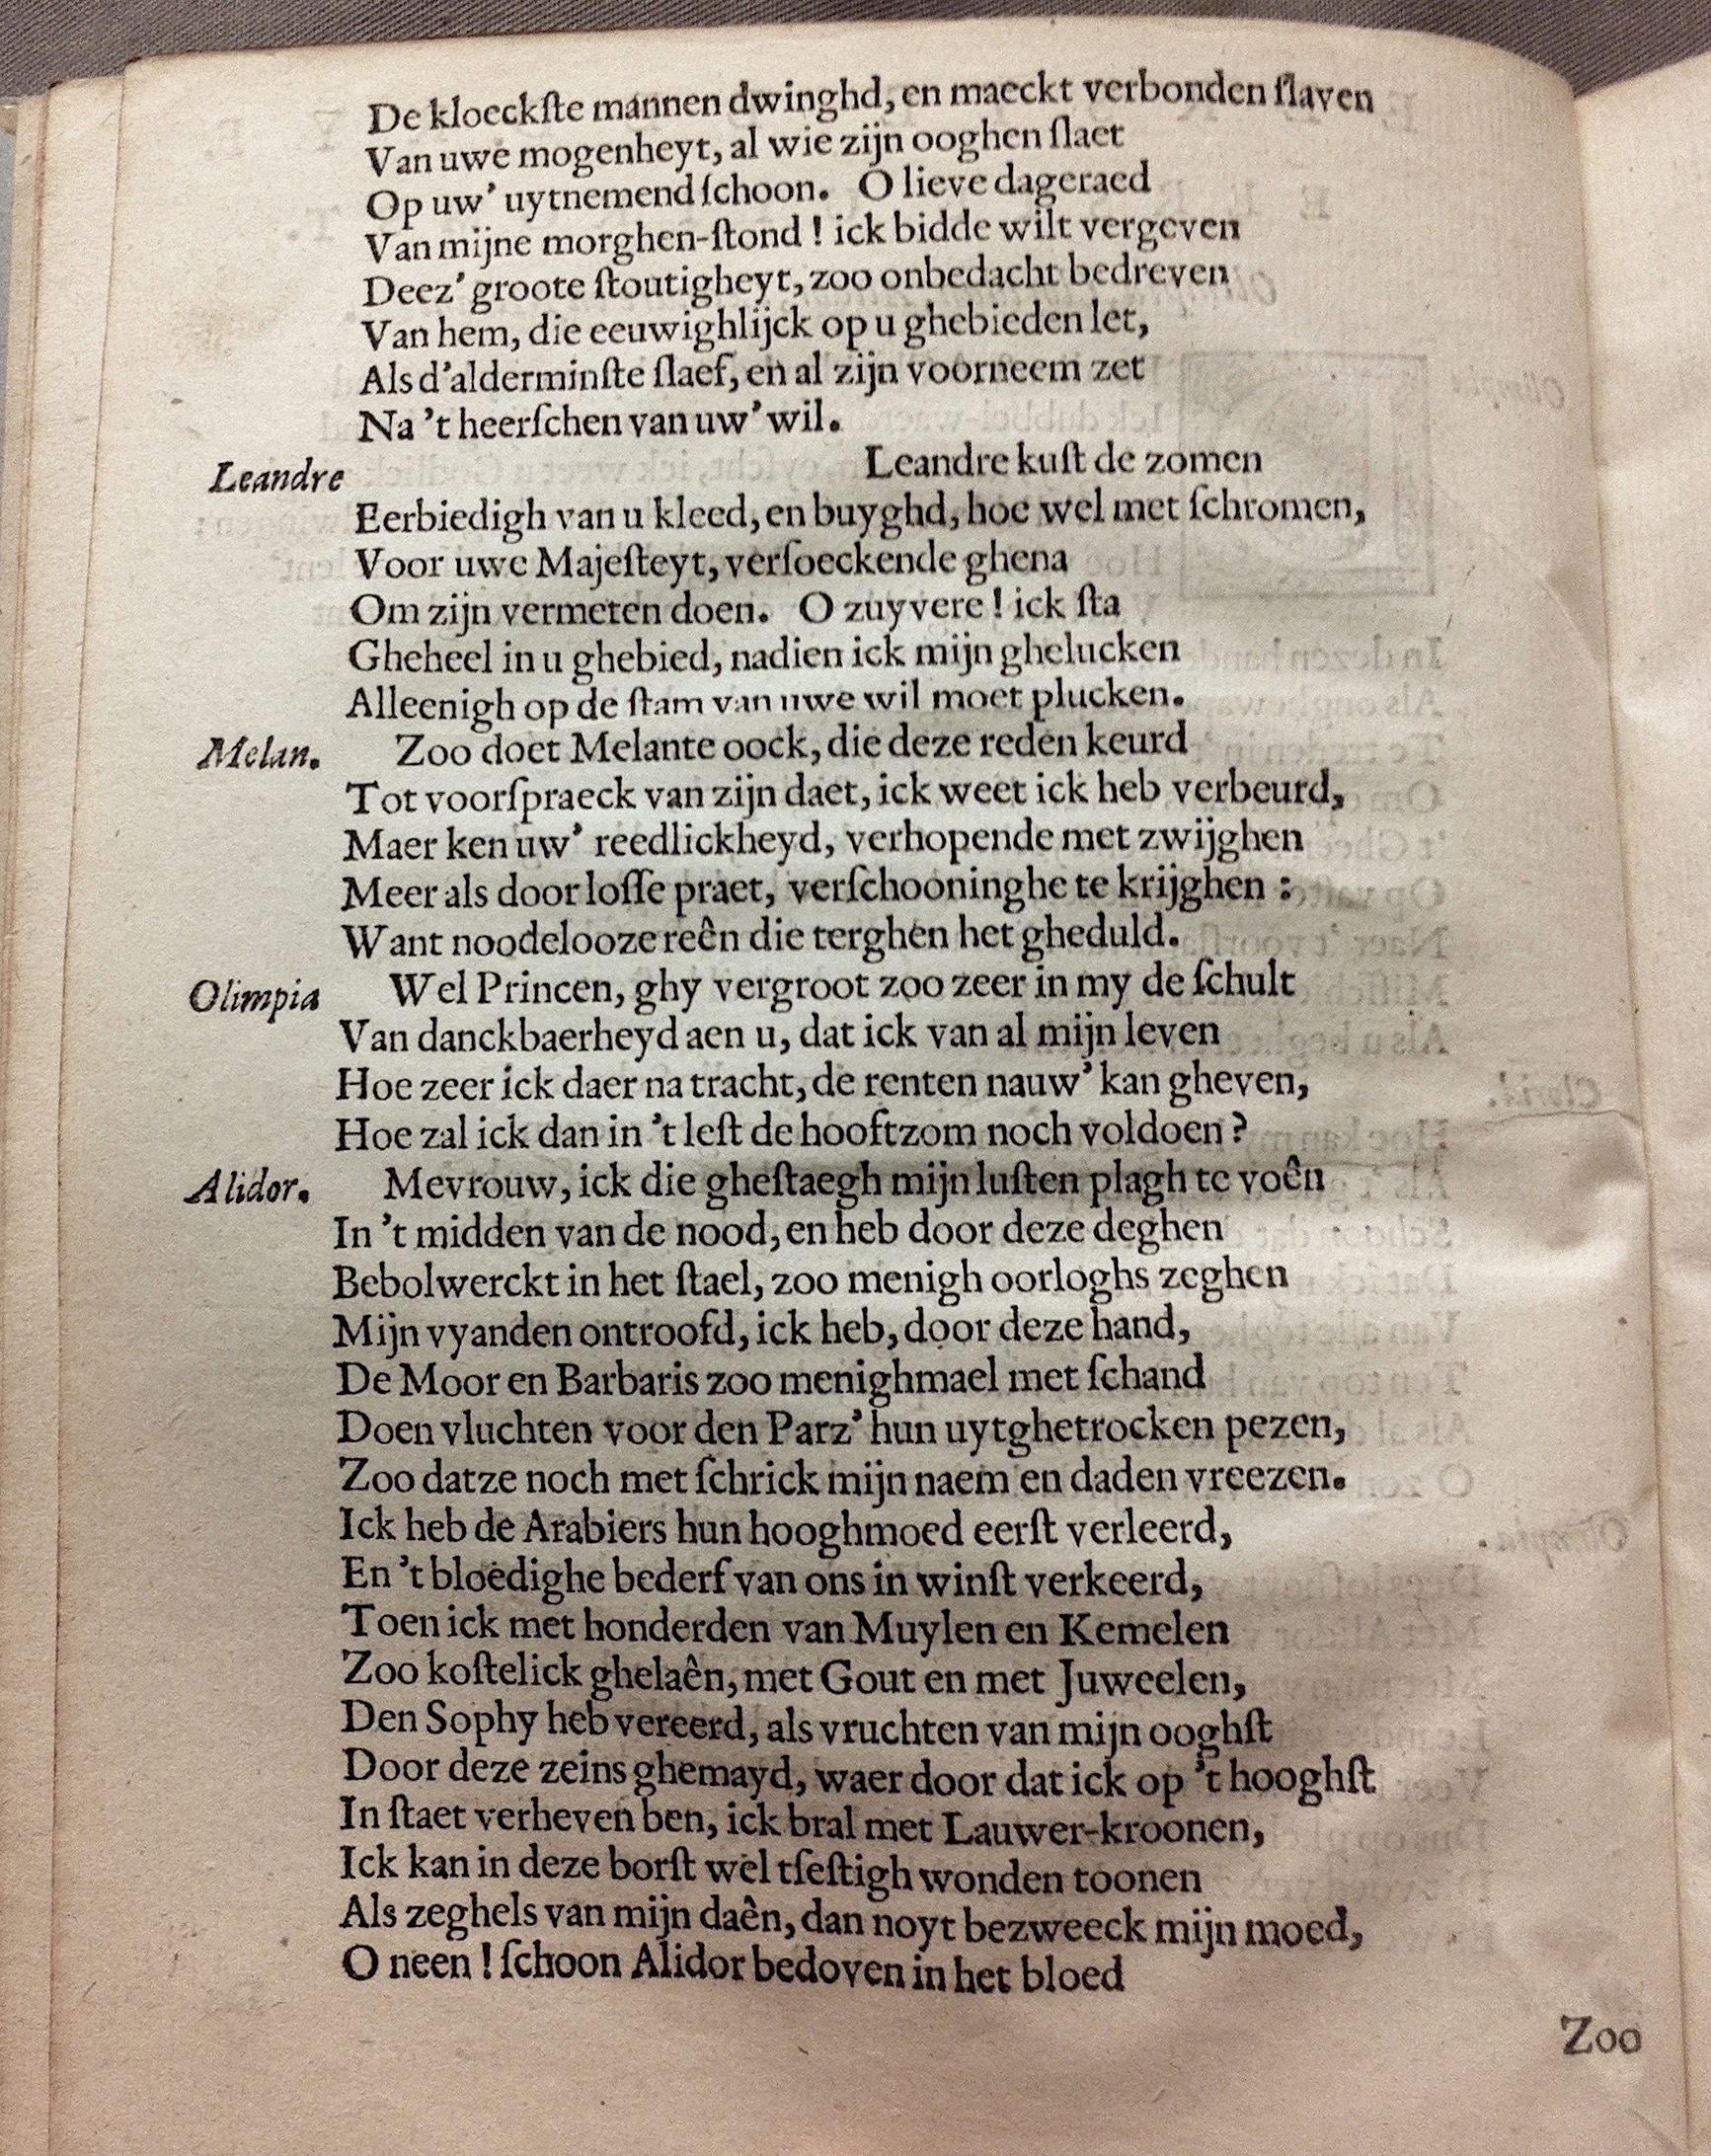 De kloeckſte mannen dwinghd, en maeckt verbonden ſlaven
Van uwe mogenheyt, al wie zijn ooghen ſlaet
Op uw’ uytnemend ſchoon. O lieve dageraed
Van mijne morghen-ſtond ! ick bidde wilt vergeven
Deez’ groote ſtoutigheyt, zoo onbedacht bedreven
Van hem, die eeuwighlijck op u ghebieden let,
Als d’alderminſte ſlaef, en al zijn voorneem zet
Na ’t heerſchen van uw’ wil.
Leandre Leandre kuſt de zomen
Eerbiedigh van u kleed, en buyghd, hoe wel met ſchromen,
Voor uwe Majeſteyt, verſoeckende ghena
Om zijn vermeten doen. O zuyvere ! ick ſta
Gheheel in u ghebied, nadien ick mijn ghelucken
Alleenigh op de ſtam van uwe wil moet plucken.
Melan. Zoo doet Melante oock, die deze reden keurd
Tot voorſpraeck van zijn daet, ick weet ick heb verbeurd,
Maer ken uw’ reedlickheyd, verhopende met zwijghen
Meer als door loſſe praet, verſchooninghe te krijghen :
Want noodelooze reên die terghen het gheduld.
Olimpia Wel Princen, ghy vergroot zoo zeer in my de ſchult
Van danckbaerheyd aen u, dat ick van al mijn leven
Hoe zeer ick daer na tracht, de renten nauw’ kan gheven,
Hoe zal ick dan in ’t leſt de hooftzom noch voldoen ?
Alidor. Mevrouw, ick die gheſtaegh mijn luſten plagh te voên
In ’t midden van de nood, en heb door deze deghen
Bebolwerckt in het ſtael, zoo menigh oorloghs zeghen
Mijn vyanden ontroofd, ick heb, door deze hand,
De Moor en Barbaris zoo menighmael met ſchand
Doen vluchten voor den Parz’ hun uytghetrocken pezen,
Zoo datze noch met ſchrick mijn naem en daden vreezen.
Ick heb de Arabiers hun hooghmoed eerſt verleerd,
En ’t bloedighe bederf van ons in winſt verkeerd,
Toen ick met honderden van Muylen en Kemelen
Zoo koſtelick ghelaên, met Gout en met Juweelen,
Den Sophy heb vereerd, als vruchten van mijn ooghſt
Door deze zeins ghemayd, waer door dat ick op ’t hooghſt
In ſtaet verheven ben, ick bral met Lauwer-kroonen,
Ick kan in deze borſt wel tſeſtigh wonden toonen
Als zeghels van mijn daên, dan noyt bezweeck mijn moed,
O neen ! ſchoon Alidor bedoven in het bloed
Zoo